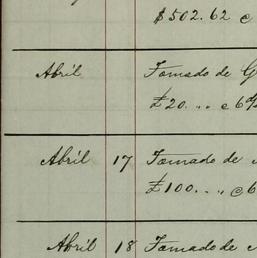 $502.62 @
Abril Tomado de G
£20. „ @ 6%
Abril 17 Tomado de
£100. „ @ 6
Abril 18 Tomado de